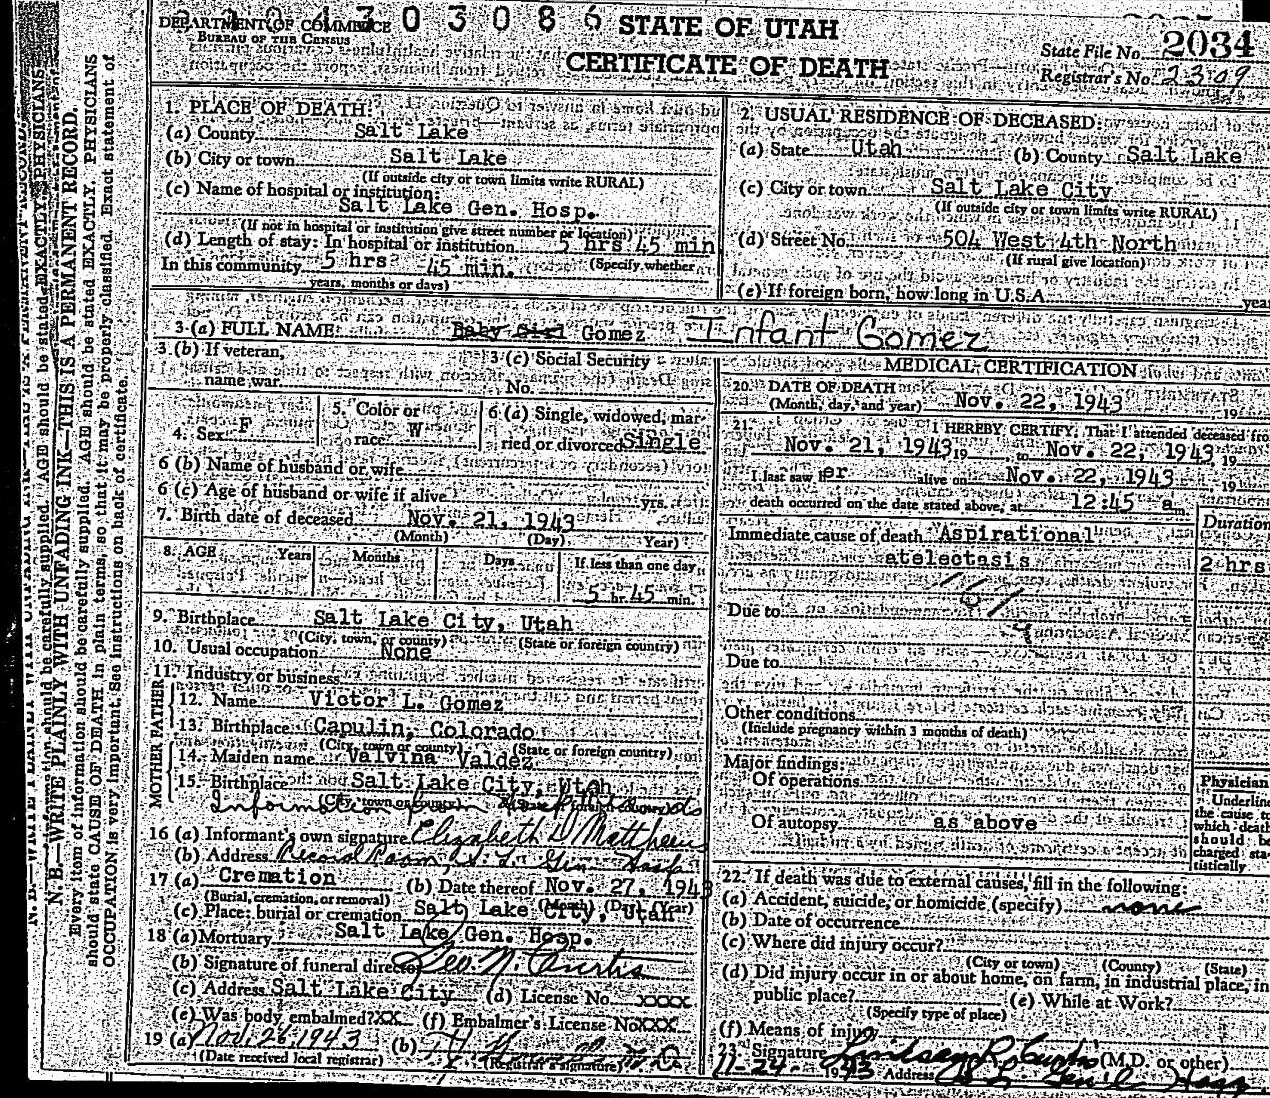 DEPARTMENT OF COMMERCE
BUREAU OF THE CENSUS
4 3 0 3 0 8 6
STATE OF UTAH
CERTIFICATE OF DEATH
State File No. 2034
Registrar's No. 2309
1. PLACE OF DEATH:
(a) County Salt Lake
(b) City or town Salt Lake
(If outside city or town limits write RURAL)
(c) Name of hospital or institution:
Salt Lake Gen. Hosp.
(If not in hospital or institution give street number or location)
(d) Length of stay: In hospital or institution 5 hrs 45 min
In this community 5 hrs 45 min. (Specify whether
years, months or days)
2. USUAL RESIDENCE OF DECEASED:
(a) State Utah (b) County Salt Lake
(c) City or town Salt Lake City
(If outside city or town limits write RURAL)
(d) Street No. 504 West 4th North
(If rural give location)
(e) If foreign born, how long in U.S.A. year
3 (a) FULL NAME: Baby Girl Gomez Infant Gomez
3. (b) If veteran,
name war
3 (c) Social Security
No.
4. Sex F
5. Color or
race W
6 (a) Single, widowed, mar-
ried or divorced Single
6 (b) Name of husband or wife
6 (c) Age of husband or wife if alive yrs.
7. Birth date of deceased Nov. 21, 1943
(Month) (Day) Year)
8. AGE Years Months Days If less than one day
5 hr. 45 min.
9. Birthplace Salt Lake City, Utah
(City, town, or county) (State or foreign country)
10. Usual occupation None
11. Industry or business
FATHER
12. Name Victor L. Gomez
13. Birthplace Capulin, Colorado
(City, town or county) (State or foreign country)
MOTHER
14. Maiden name Valvina Valdez
15. Birthplace Salt Lake City, Utah
(City, town or county)
Information from Hosp Records
16 (a) Informant's own signature Elizabeth D Matthews
(b) Address Record Room, S. L. Gen. Hosp
17 (a) Cremation (b) Date thereof Nov. 27, 1943
(Burial, cremation, or removal) (Month) (Day) (Year)
(c) Place: burial or cremation Salt Lake City, Utah
18 (a) Mortuary Salt Lake Gen. Hosp.
(b) Signature of funeral director Geo. N. Curtis
(c) Address Salt Lake City (d) License No. xxxx
(e) Was body embalmed? XX (f) Embalmer's License No XXX
19 (a) Nov. 26 1943 (b) M.D.
(Date received local registrar) (Registrar's signature)
MEDICAL CERTIFICATION
20. DATE OF DEATH
(Month, day, and year) Nov. 22, 1943 19
21. I HEREBY CERTIFY, That I attended deceased fro
Nov. 21, 1943 19 , to Nov. 22, 1943, 19
I last saw her alive on Nov. 22, 1943 19
death occurred on the date stated above, at 12:45 a m.
Duration
Immediate cause of death Aspirational
atelectasis 2 hrs
161
Due to
Due to
Other conditions
(Include pregnancy within 3 months of death)
Major findings:
Of operations
Of autopsy as above
Physician
Underline
the cause to
which death
should be
charged sta-
tistically
22. If death was due to external causes, fill in the following:
(a) Accident, suicide, or homicide (specify) none
(b) Date of occurrence
(c) Where did injury occur?
(City or town) (County) (State)
(d) Did injury occur in or about home, on farm, in industrial place, in
public place? (e) While at Work?
(Specify type of place)
(f) Means of injury
23. Signature Lindsay R. Curtis (M.D. or other)
11-24- 1943 Address S. L. Gen'l Hosp.
N. B.—WRITE PLAINLY WITH UNFADING INK—THIS IS A PERMANENT RECORD.
Every item of information should be carefully supplied. AGE should be stated EXACTLY. PHYSICIANS
should state CAUSE OF DEATH in plain terms, so that it may be properly classified. Exact statement of
OCCUPATION is very important. See instructions on back of certificate.